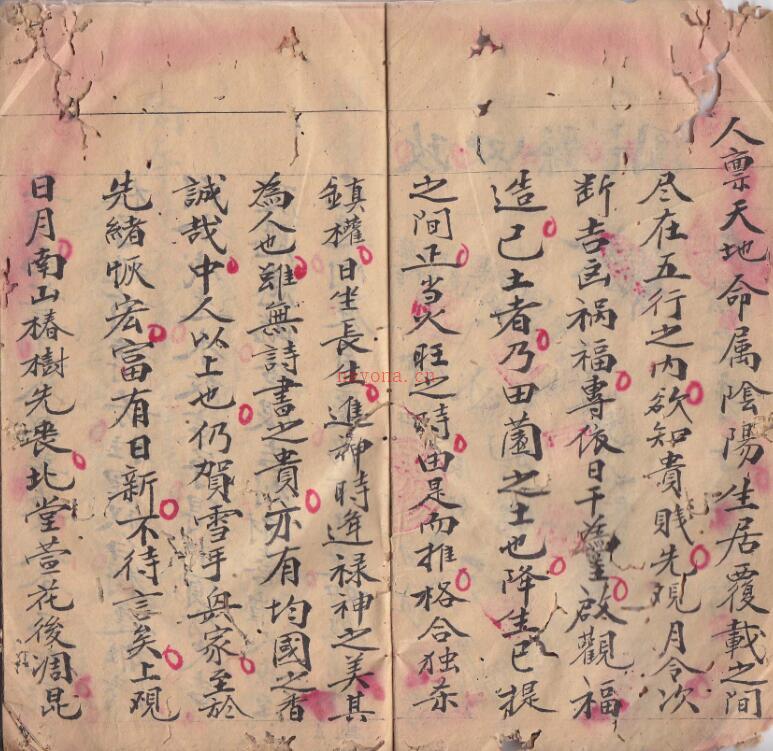 人禀天地命属陰陽生居覆載之间
尽在五行之内欲知貴贱先观月令次
断吉凶祸福專依日干為主啟觀福
造己土者乃田薗之土也降生巳提
之间正当火旺之時由是而推格合独杀
鎮權日坐長生進神時逢禄神之美其
為人也雖無詩書之貴亦有均國之香
誠哉中人以上也仍賀雪手興家至於
先緒恢宏富有日新不待言矣上观
日月南山椿樹先喪北堂萱花後凋昆
nayona.cn